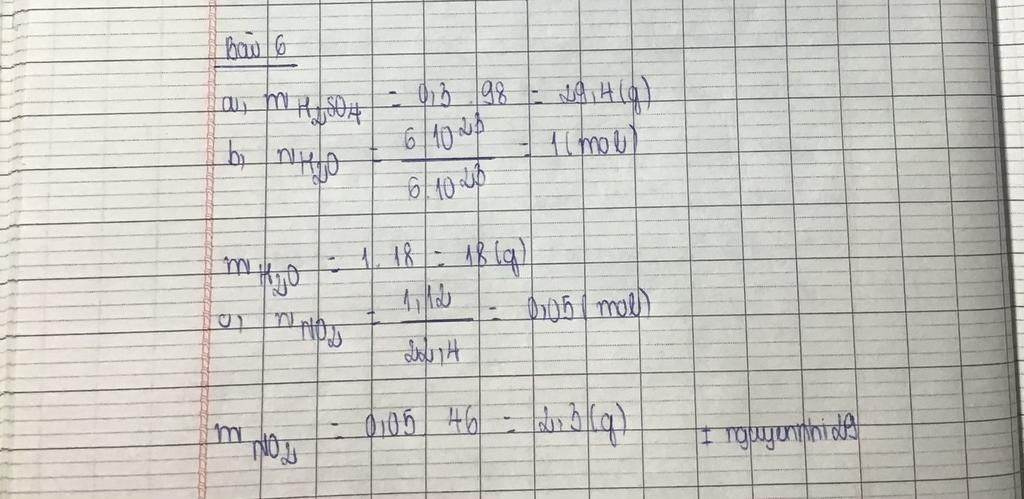 Bài 6
a, mH2SO4 = 0,3 . 98 = 29,4 (g)
b, nH2O = 6.10^23 / 6.10^23 = 1 (mol)
mH2O = 1.18 = 18 (g)
c, nNO2 = 1,12 / 22,4 = 0,05 (mol)
mNO2 = 0,05 46 = 2,3 (g)
± nguyennhi29